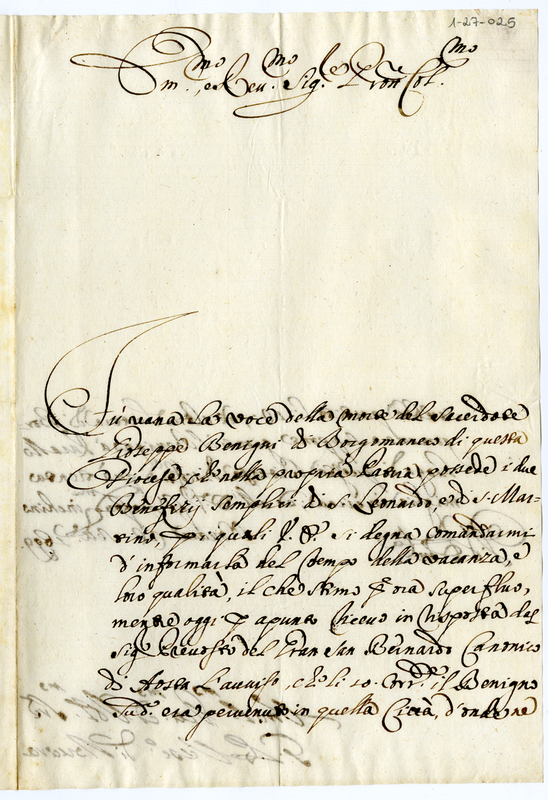 1-27-025
Em.mo, e Rev.mo Sig.re P.ron Col.mo
Fù vana la voce della morte del Sacerdote
Giuseppe Benigni di Borgomanero di questa
Diocese, ch nella propria Patria possede i due
Benefitij semplici di S. Leonardo, e di S. Mar-
tino, di quali V. E. si degna comandarmi
d'informarla del tempo della vacanza, e
loro qualità, il che stimo p ora superfluo,
mentre oggi p apunto ricevo in risposta dal
Sig.r Prevosto del Gran San Bernardo Canonico
di Aosta l'avviso, ch li 20. il Benigno
Sud.o era pervenuto in quella Città, d'onde ne